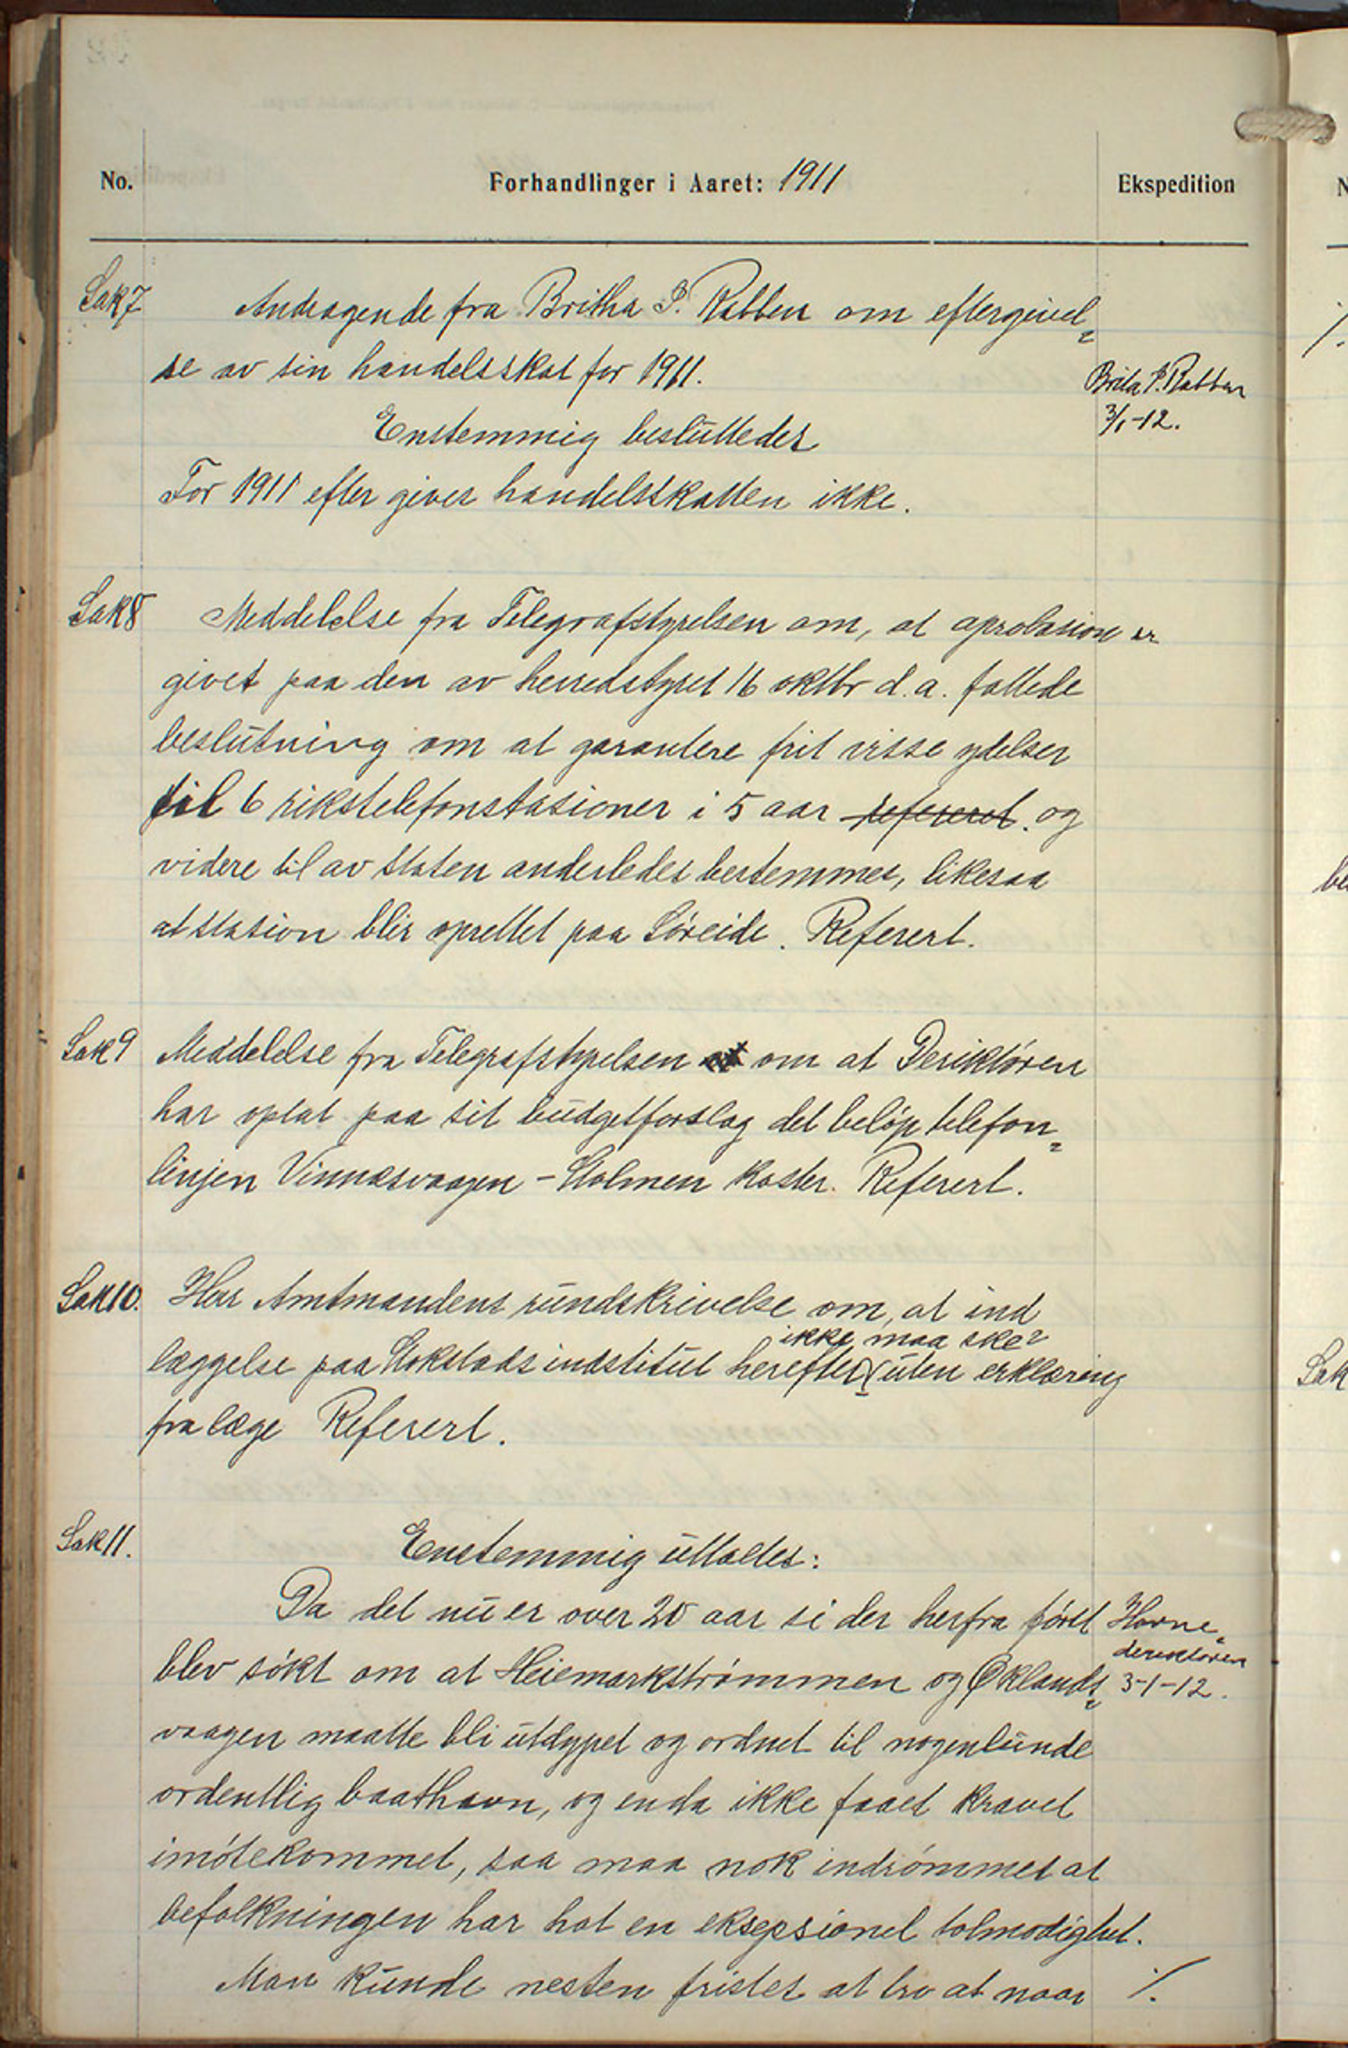 No. Forhandlinger i Aaret: 1911 Ekspedition
Sak 7 Andragende fra Britha P. Rabben om eftergivel=
se av sin handelsskat for 1911.
Brita P. Rabben
3/1-12.
Enstemmig besluttedes
For 1911 efter gives handelsskatten ikke.
Sak 8 Meddelelse fra Telegrafstyrelsen om, at aprobasion er
givet paa den av herredstyret 16 oktbr d.a. fattede
beslutning om at garantere frit visse ydelser
til 6 rikstelefonstasioner i 5 aar refereret. og
videre til av staten anderledes bestemmes, likesaa
at stasion blir oprettet paa Søreide. Referert.
Sak 9 Meddelelse fra Telegrafstyrelsen at om at Deriktøren
har optat paa sit budgetforslag det beløp telefon=
linjen Vinnesvaagen - Stolmen koster. Referert.
Sak 10. Herr Amtmandens rundskrivelse om, at ind
ikke maa ske
læggelse paa Stokstads indstitut herefter uten erklæring
fra læge Referert.
Sak 11. Enstemmig uttaltes:
Da det nu er over 20 aar si der herfra først
Havne=
deriktøren
3-1-12.
blev søkt om at Heiemarkstrømmen og Øklands=
vaagen maatte bli utdypet og ordnet til nogenlunde
ordentlig baathavn, og enda ikke faaet kravet
imøtekommet, saa maa nok indrømmes at
befolkningen har hat en eksepsionel tolmodighet.
Man kunde nesten fristes at tro at naar ./.